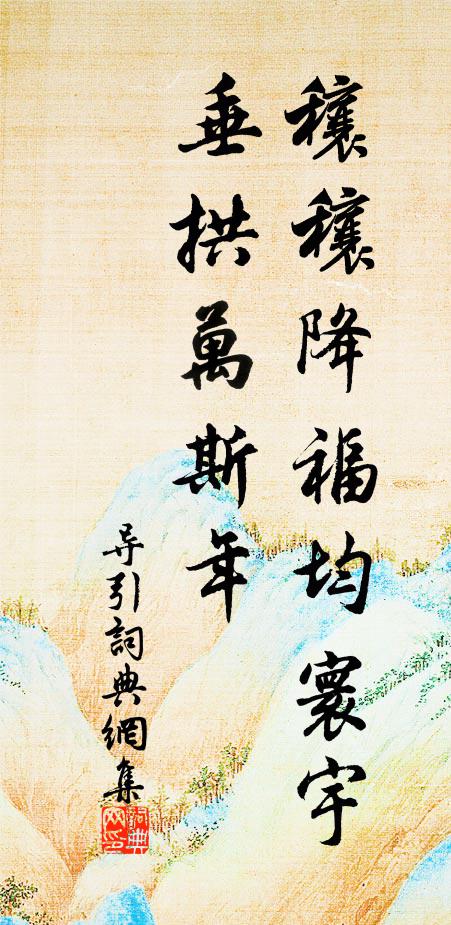 穰穰降福均寰宇
垂拱萬斯年
导引詞典網集
詞典
网印